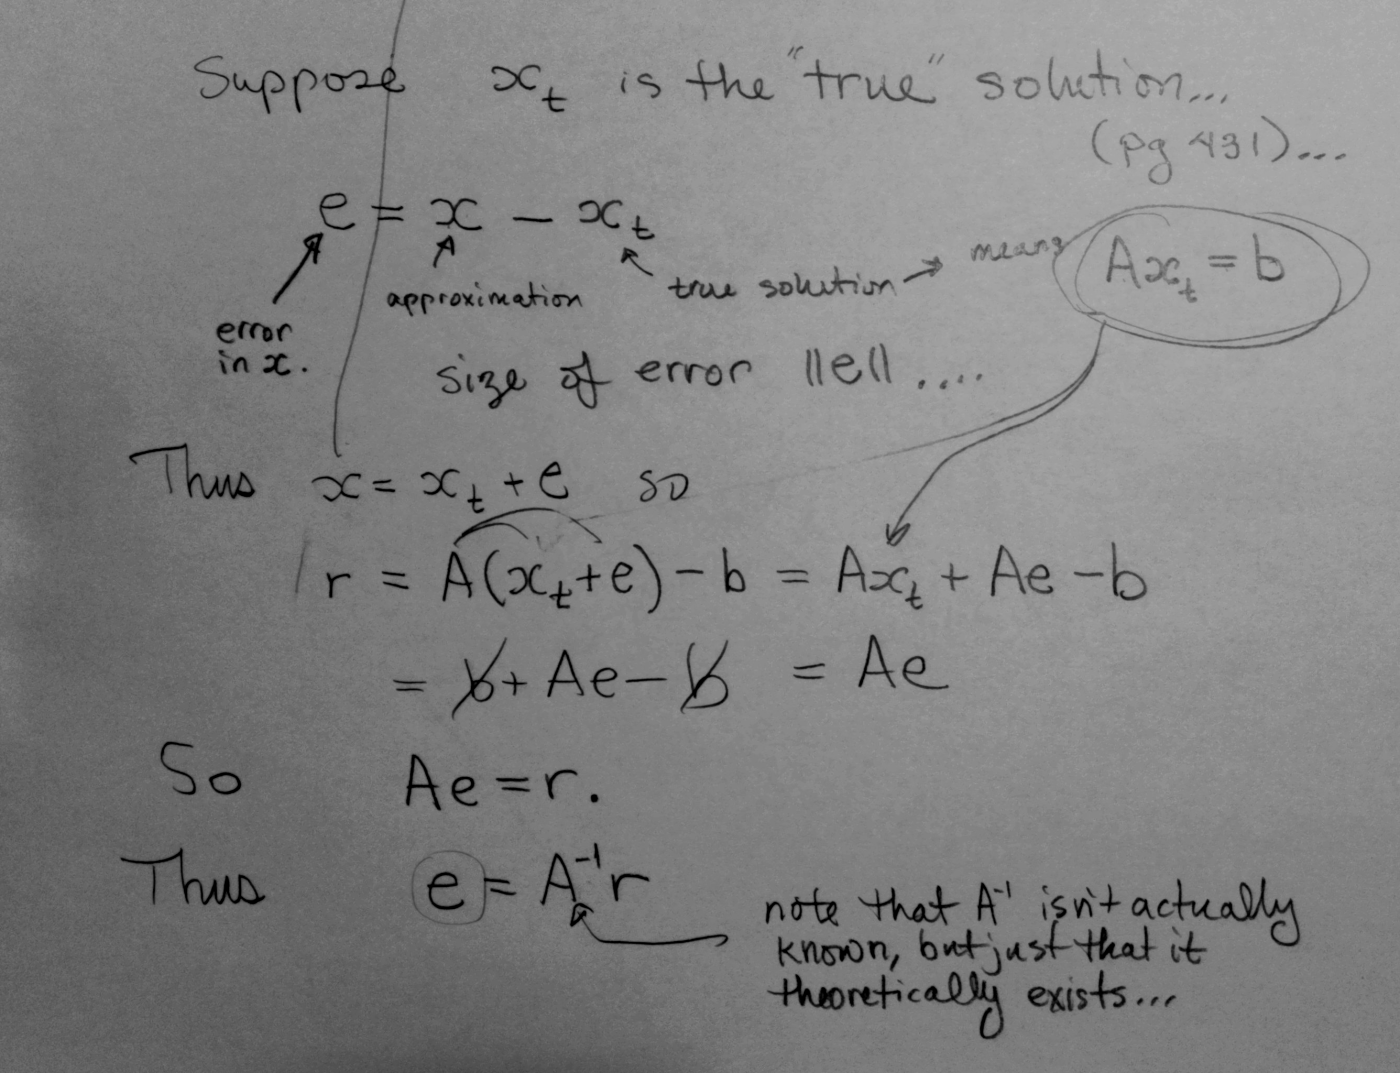 Suppose x_t is the "true" solution...
(pg 431)...
e = x - x_t
means Ax_t = b
approximation
true solution
error
in x.
size of error ||e|| ....
Thus x = x_t + e so
r = A(x_t + e) - b = Ax_t + Ae - b
= b + Ae - b = Ae
So Ae = r.
Thus e = A⁻¹r
note that A⁻¹ isn't actually
known, but just that it
theoretically exists...